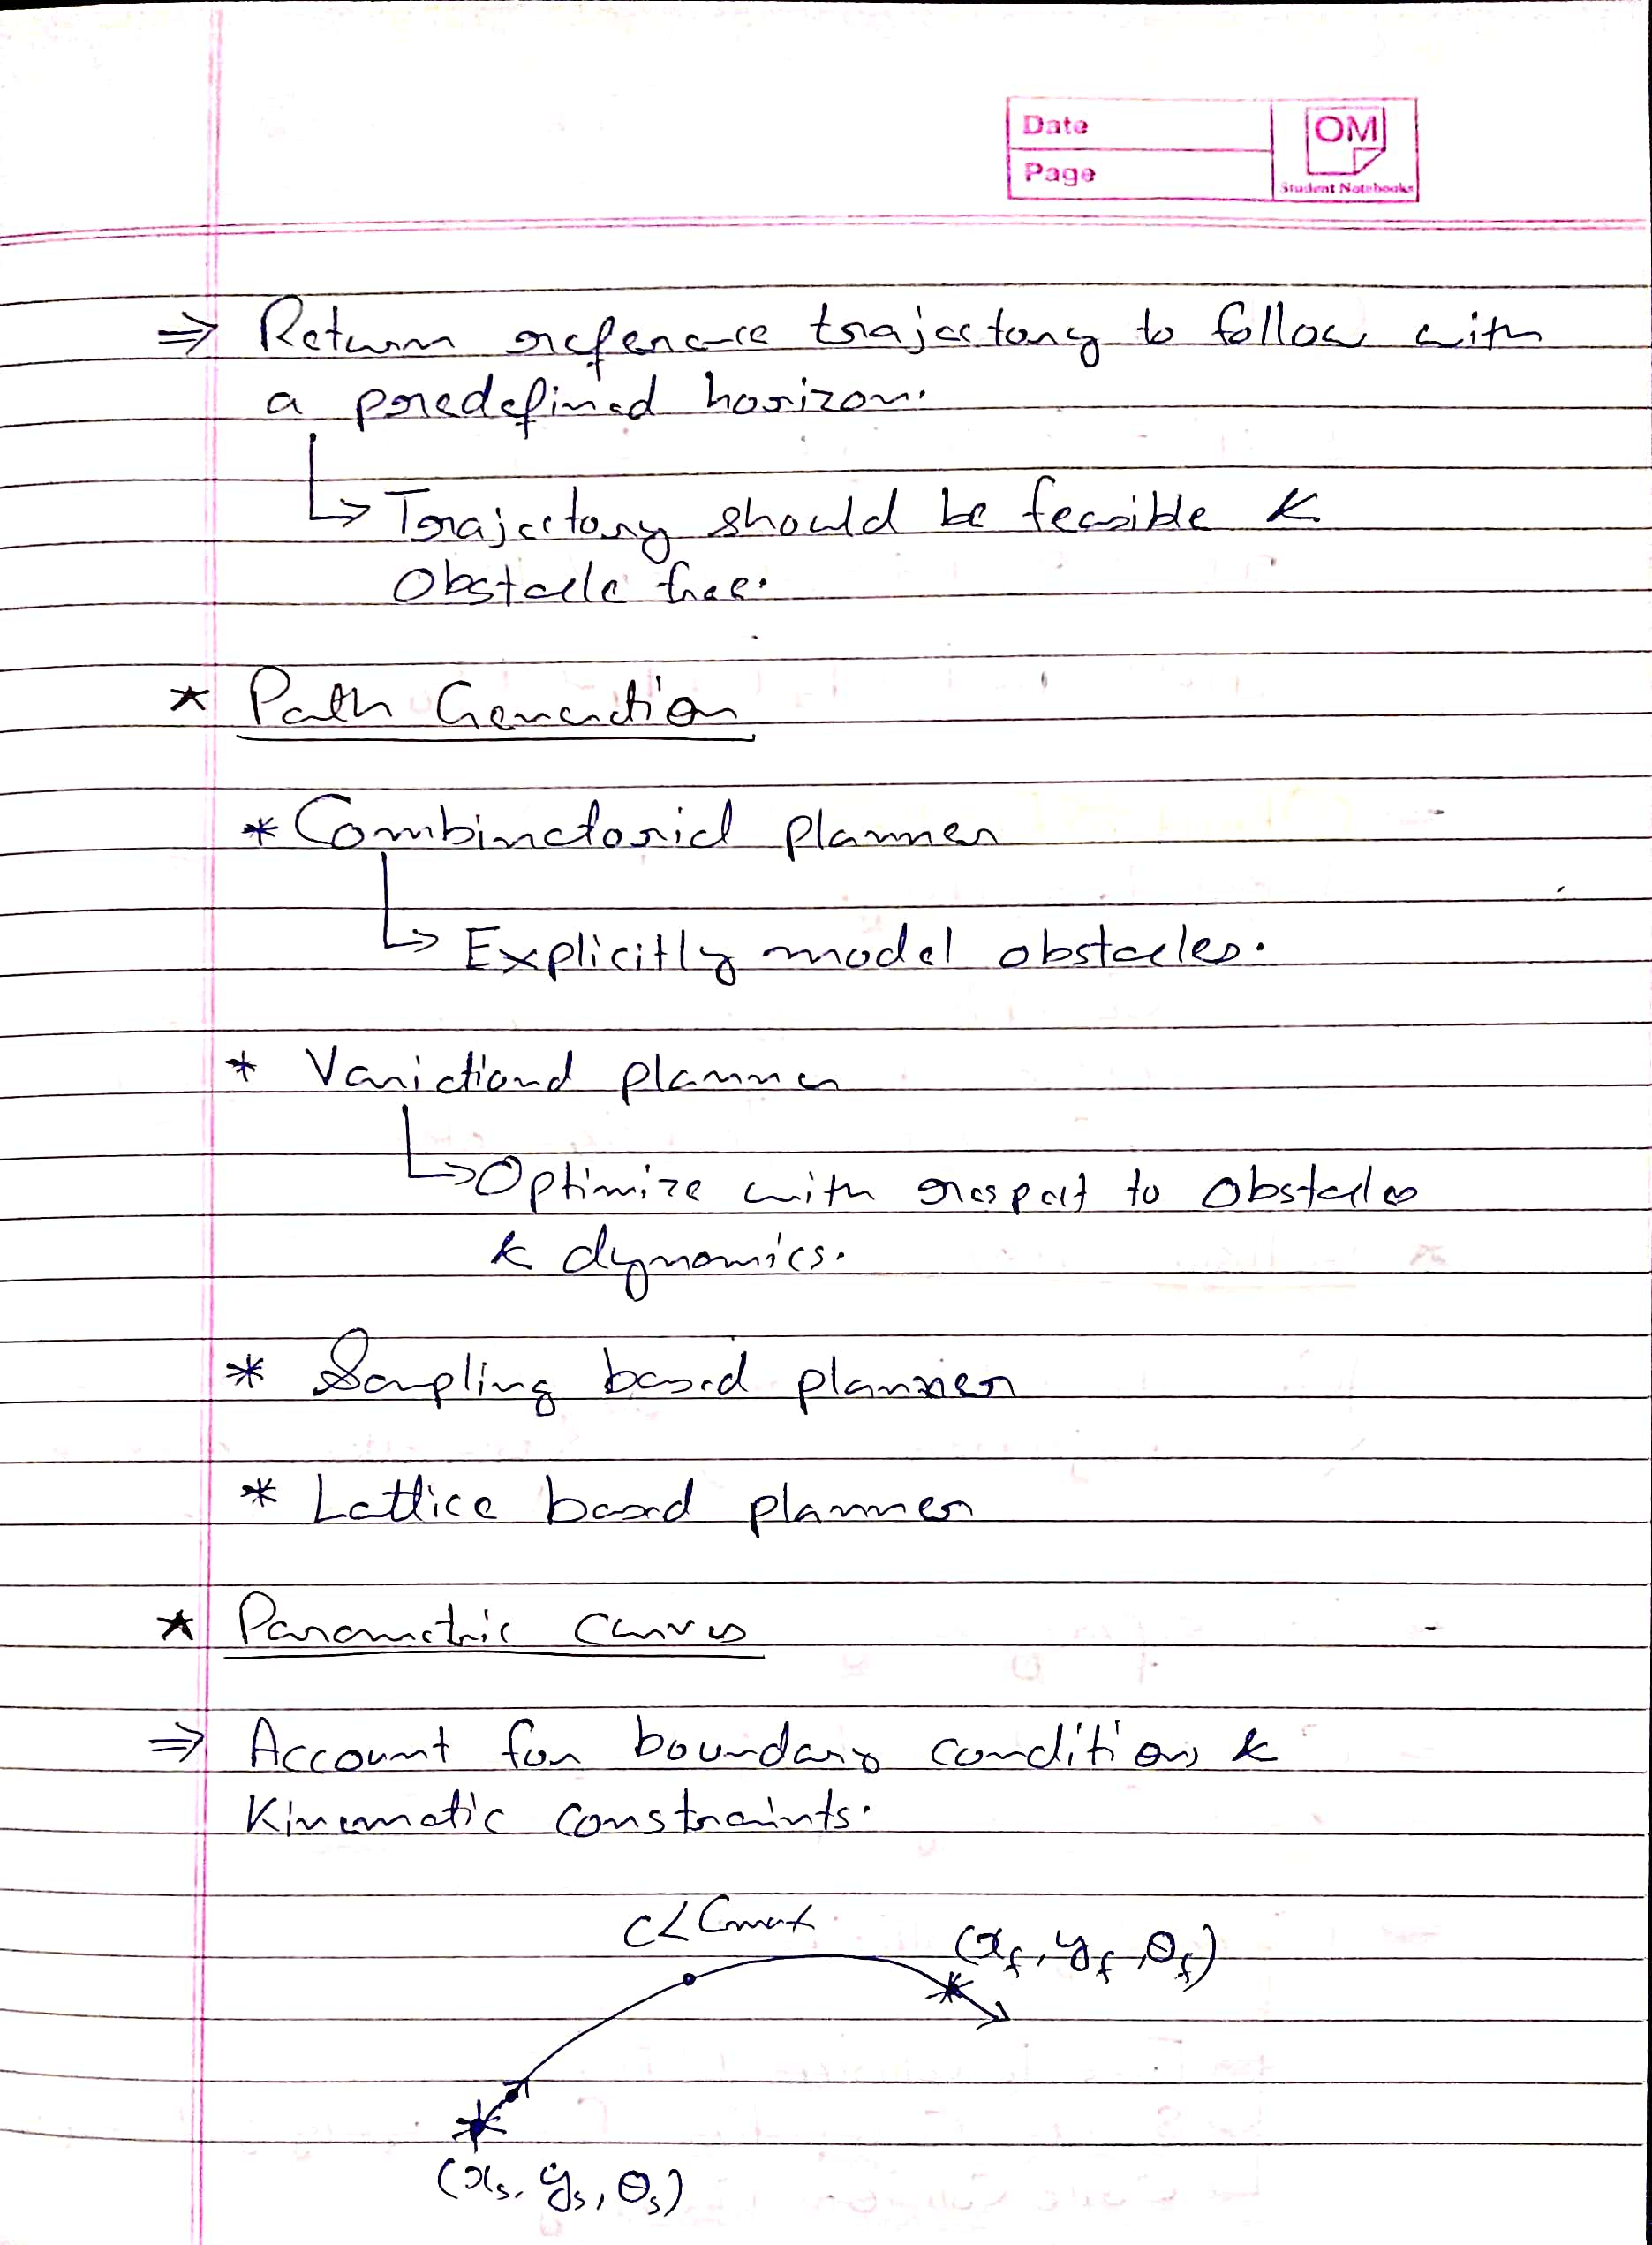 Date
Page
OM
Student Notebooks
⇒ Return reference trajectory to follow with
a predefined horizon.
↳ Trajectory should be feasible &
Obstacle free.
★ Path Generation
* Combinatorial planner
↳ Explicitly model obstacles.
* Variational planner
↳ Optimize with respect to obstacles
& dynamics.
* Sampling based planner
* Lattice based planner
★ Parametric Curves
⇒ Account for boundary conditions &
Kinematic constraints.
C < Cmax
(x_f, y_f, θ_f)
(x_s, y_s, θ_s)